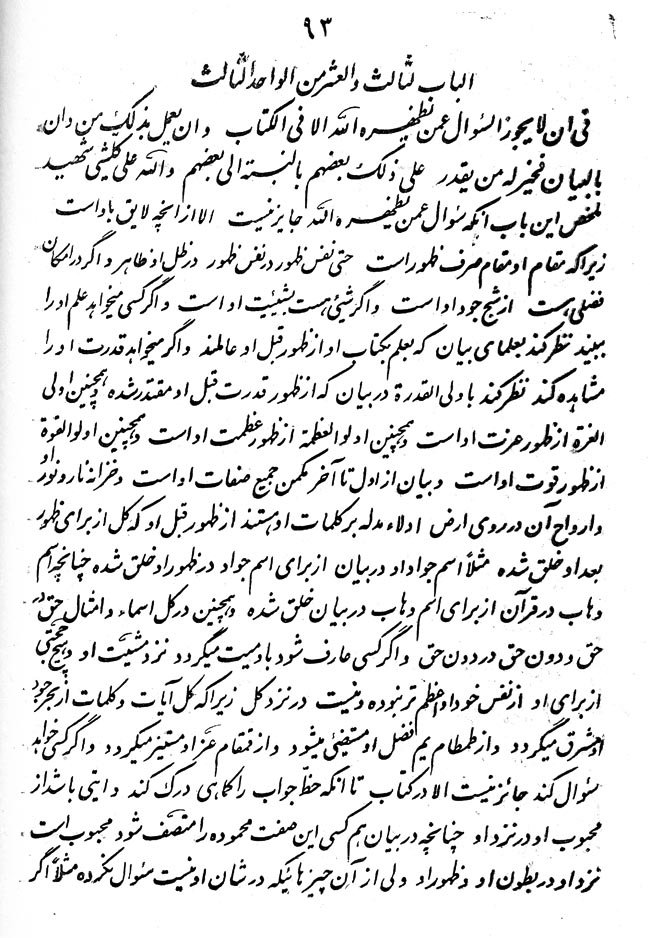 ٩٣
الباب الثالث والعشر من الواحد الثالث
فی ان لا یجوز السؤال عمن یظهره الله الا فی الکتاب وان یعمل بذلک من دان
بالبیان فخیر له من یقدر علی ذلک بعضهم بالنسبة الی بعضهم والله علی کلشیئ شهید
ملخص این باب آنکه سؤال عمن یظهره الله جایز نیست الا از آنچه لایق باو است
زیراکه مقام او مقام صرف ظهور است حتی نفس ظهور در نفس ظهور در ظل او ظاهر و اگر در امکان
فضلی هست از شبح جود او است و اگر شیئی هست بشیئیت او است و اگر کسی میخواهد علم او را
ببیند نظر کند بعلمای بیان که بعلم بکتاب او از ظهور قبل او عالمند و اگر میخواهد قدرت او را
مشاهده کند نظر کند باولی القدرة در بیان که از ظهور قدرت قبل او مقتدر شده و همچنین اولی
العزة از ظهور عزت او است و همچنین اولو العظمة از ظهور عظمت او است و همچنین اولو القوة
از ظهور قوت او است و بیان از اول تا آخر مکمن جمیع صفات او است و خزانه نار و نور او
و ارواح آن در روی ارض ادلاء مدله بر کلمات او هستند از ظهور قبل او که کل از برای ظهور
بعد او خلق شده مثلاً اسم جواد او در بیان از برای اسم جواد در ظهور او خلق شده چنانچه اسم
وهاب در قرآن از برای اسم وهاب در بیان خلق شده و همچنین در کل اسماء و امثال حق در
حق و دون حق در دون حق و اگر کسی عارف شود باو میت میگردد نزد مشیت او و هیچ حجتی
از برای او از نفس خود او اعظم تر نبوده و نیست در نزد کل زیراکه کل آیات و کلمات از بحر جود
او مشرق میگردد و از طمطام یم فضل او مستضیئ میشود و از قمقام عز او مستنیر میگردد و اگر کسی خواهد
سؤال کند جائز نیست الا در کتاب تا آنکه حظ جواب را کماهی درک کند و آیتی باشد از
محبوب او در نزد او چنانچه در بیان هم کسی این صفت محموده را متصف شود محبوب است
نزد او در بطون او و ظهور او ولی از آن چیزهائیکه در شان او نیست سؤال نکرده مثلاً اگر